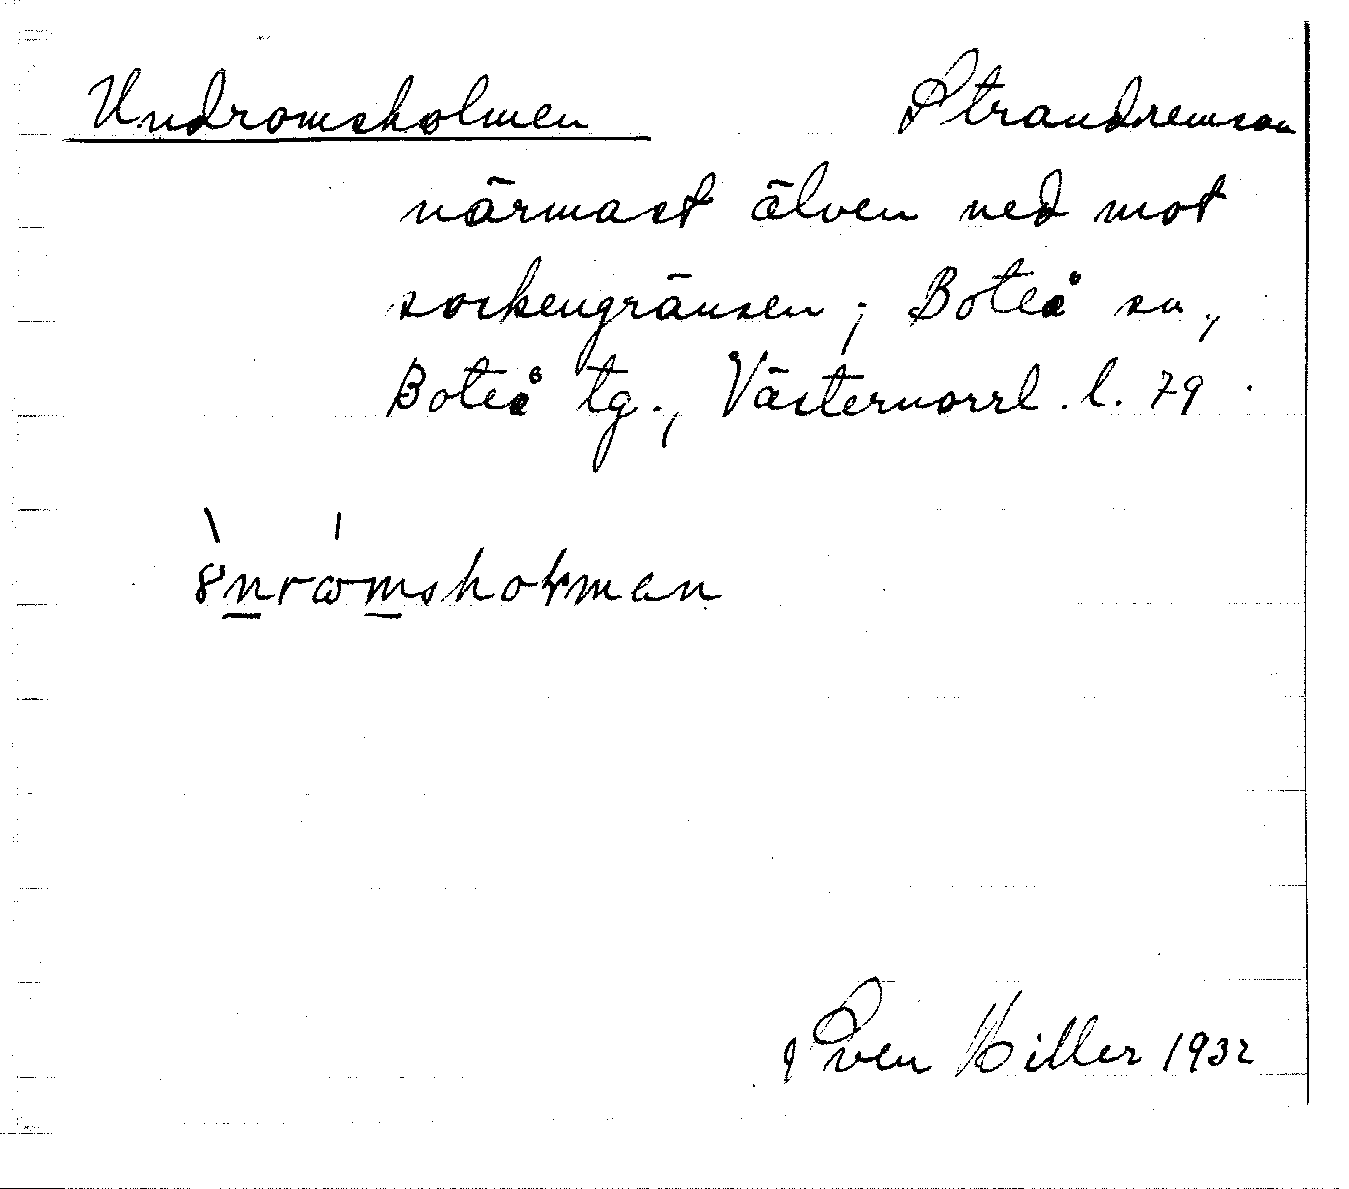 Undromsholmen Strandremsan
närmast älven ned mot
sockengränsen; Boteå sn,
Boteå tg., Västernorrl. l. 79.
Sven Hiller 1932